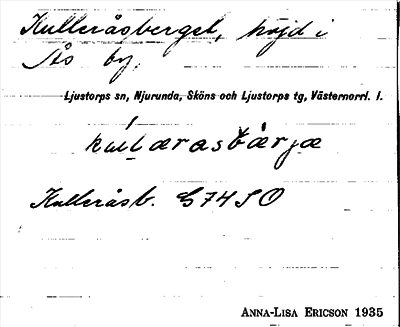 Kulleråsberget, höjd i
Ås by,
Ljustorps sn, Njurunda, Sköns och Ljustorps tg, Västernorrl. l.
Kulleråsb. G74SO
ANNA-LISA ERICSON 1935